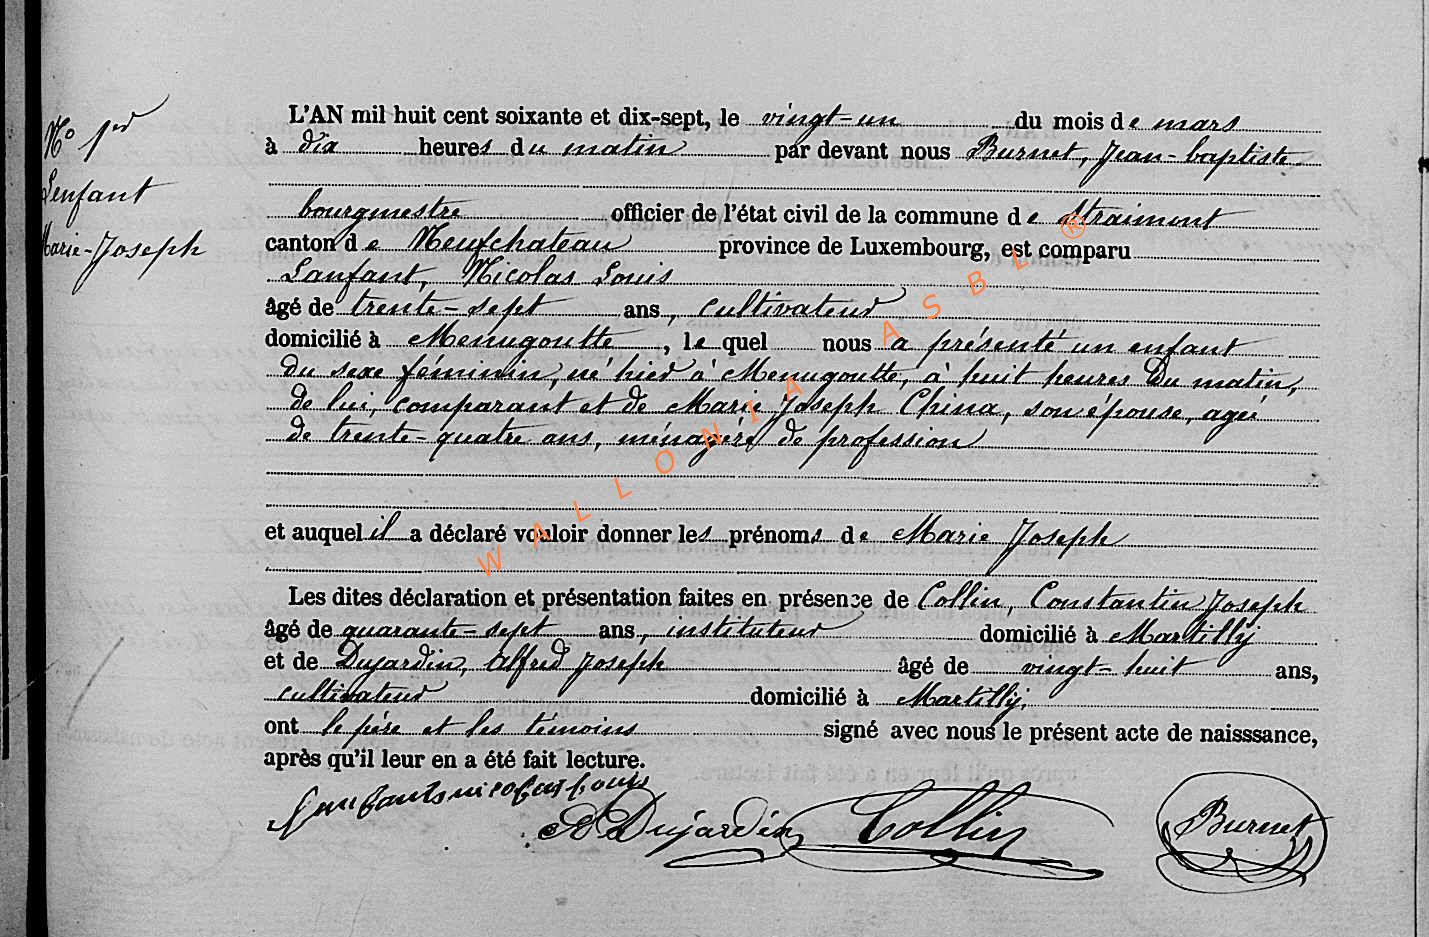 N° 1er
Lenfant
Marie-Joseph
L'AN mil huit cent soixante et dix-sept, le vingt-un du mois de mars
à dix heures du matin par devant nous Burnet, Jean-baptiste
bourgmestre officier de l'état civil de la commune de Straimont
canton de Neufchateau province de Luxembourg, est comparu
Lanfant, Nicolas Louis
âgé de trente-sept ans, cultivateur
domicilié à Menugoutte, lequel nous a présenté un enfant
du sexe féminin, né hier à Menugoutte, à huit heures du matin,
de lui, comparant et de Marie Joseph China, son épouse, agée
de trente-quatre ans, ménagère de profession
et auquel il a déclaré vouloir donner les prénoms de Marie Joseph
Les dites déclaration et présentation faites en présence de Collin, Constantin Joseph
âgé de quarante-sept ans, instituteur domicilié à Martilly
et de Dujardin, Alfred Joseph âgé de vingt-huit ans,
cultivateur domicilié à Martilly,
ont le père et les témoins signé avec nous le présent acte de naisssance,
après qu'il leur en a été fait lecture.
nicolas Louis
A Dujardin Collin Burnet
WALLONIA ASBL ®